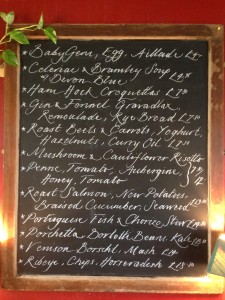 * Baby Gem, Egg,
* Celeriac & Bramley Soup
* Devon Blue
* Ham Hock Croquettas
* Gin & Fennel Gravadlax,
Remoulade, Rye Bread
* Roast Beets & Carrots, Yoghurt,
Hazelnuts, Curry Oil
* Mushroom & Cauliflower Risotto
* Penne, Tomato, Aubergine,
Honey, Tomato
* Roast Salmon, New Potatoes,
Braised Cucumber, Seaweed
* Portuguese Fish & Chorizo Stew
* Porchetta, Borlotti Beans, Kale
* Venison Borscht, Mash
* Ribeye, Chips, Horseradish